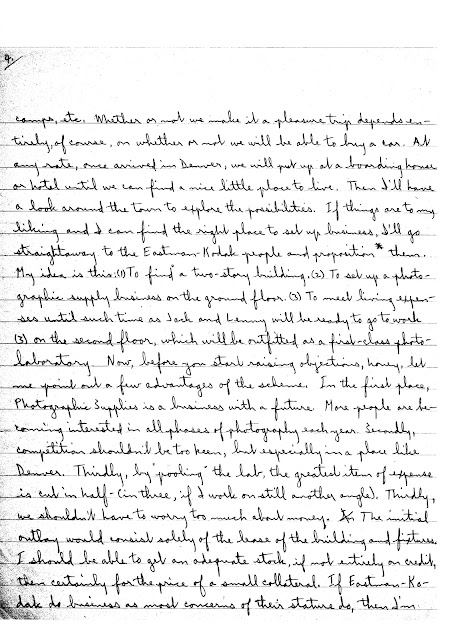 9.
camps, etc. Whether or not we make it a pleasure trip depends en-
tirely, of course, on whether or not we will be able to buy a car. At
any rate, once arrived in Denver, we will put up at a boarding house
or hotel until we can find a nice little place to live. Then I'll have
a look around the town to explore the possibilities. If things are to my
liking and I can find the right place to set up business, I'll go
straightaway to the Eastman-Kodak people and proposition* them.
My idea is this: (1) To find a two-story building. (2) To set up a photo-
graphic supply business on the ground floor. (3) To meet living expen-
ses until such time as Jack and Lenny will be ready to go to work
(3) on the second floor, which will be outfitted as a first-class photo-
laboratory. Now, before you start raising objections, honey, let
me point out a few advantages of the scheme. In the first place,
Photographic Supplies is a business with a future. More people are be-
coming interested in all phases of photography each year. Secondly,
competition shouldn't be too keen, but especially in a place like
Denver. Thirdly, by "pooling" the lab, the greatest item of expense
is cut in half-(in three, if I work on still another angle). Thirdly,
we shouldn't have to worry too much about money. The initial
outlay would consist solely of the lease of the building and fixtures.
I should be able to get an adequate stock, if not entirely on credit,
then certainly for the price of a small collateral. If Eastman-Ko-
dak do business as most concerns of their stature do, then I'm